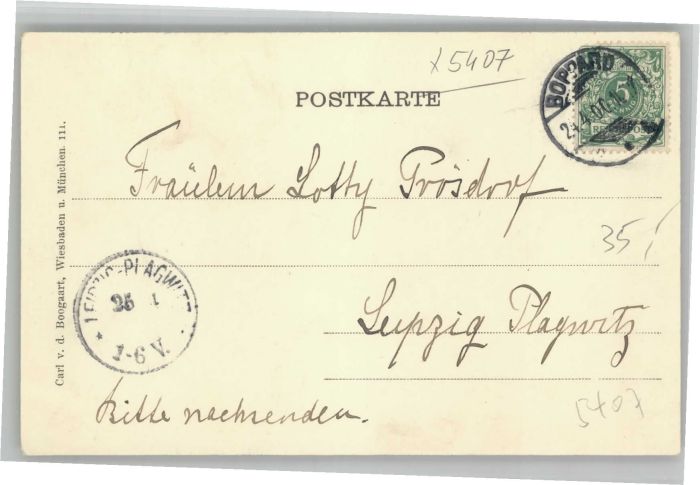 x5407
POSTKARTE
BOPPARD
5
Fräulein Lotty Prösdorf
35,-
LEIPZIG-PLAGWITZ
25 4
1-6 V.
Leipzig Plagwitz
Bitte nachsenden.
5407
Carl v. d. Boogaart, Wiesbaden u. München 111.